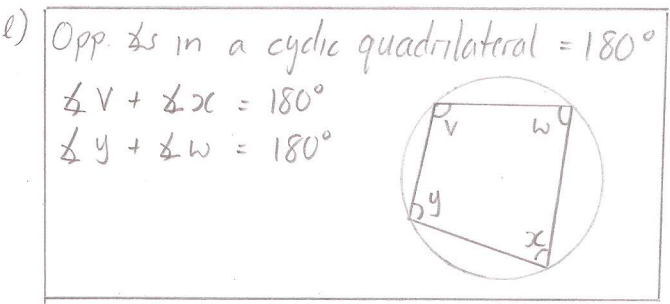 e) Opp. ∡s in a cyclic quadrilateral = 180°
∡ V + ∡ x = 180°
∡ y + ∡ w = 180°
V w
y
x